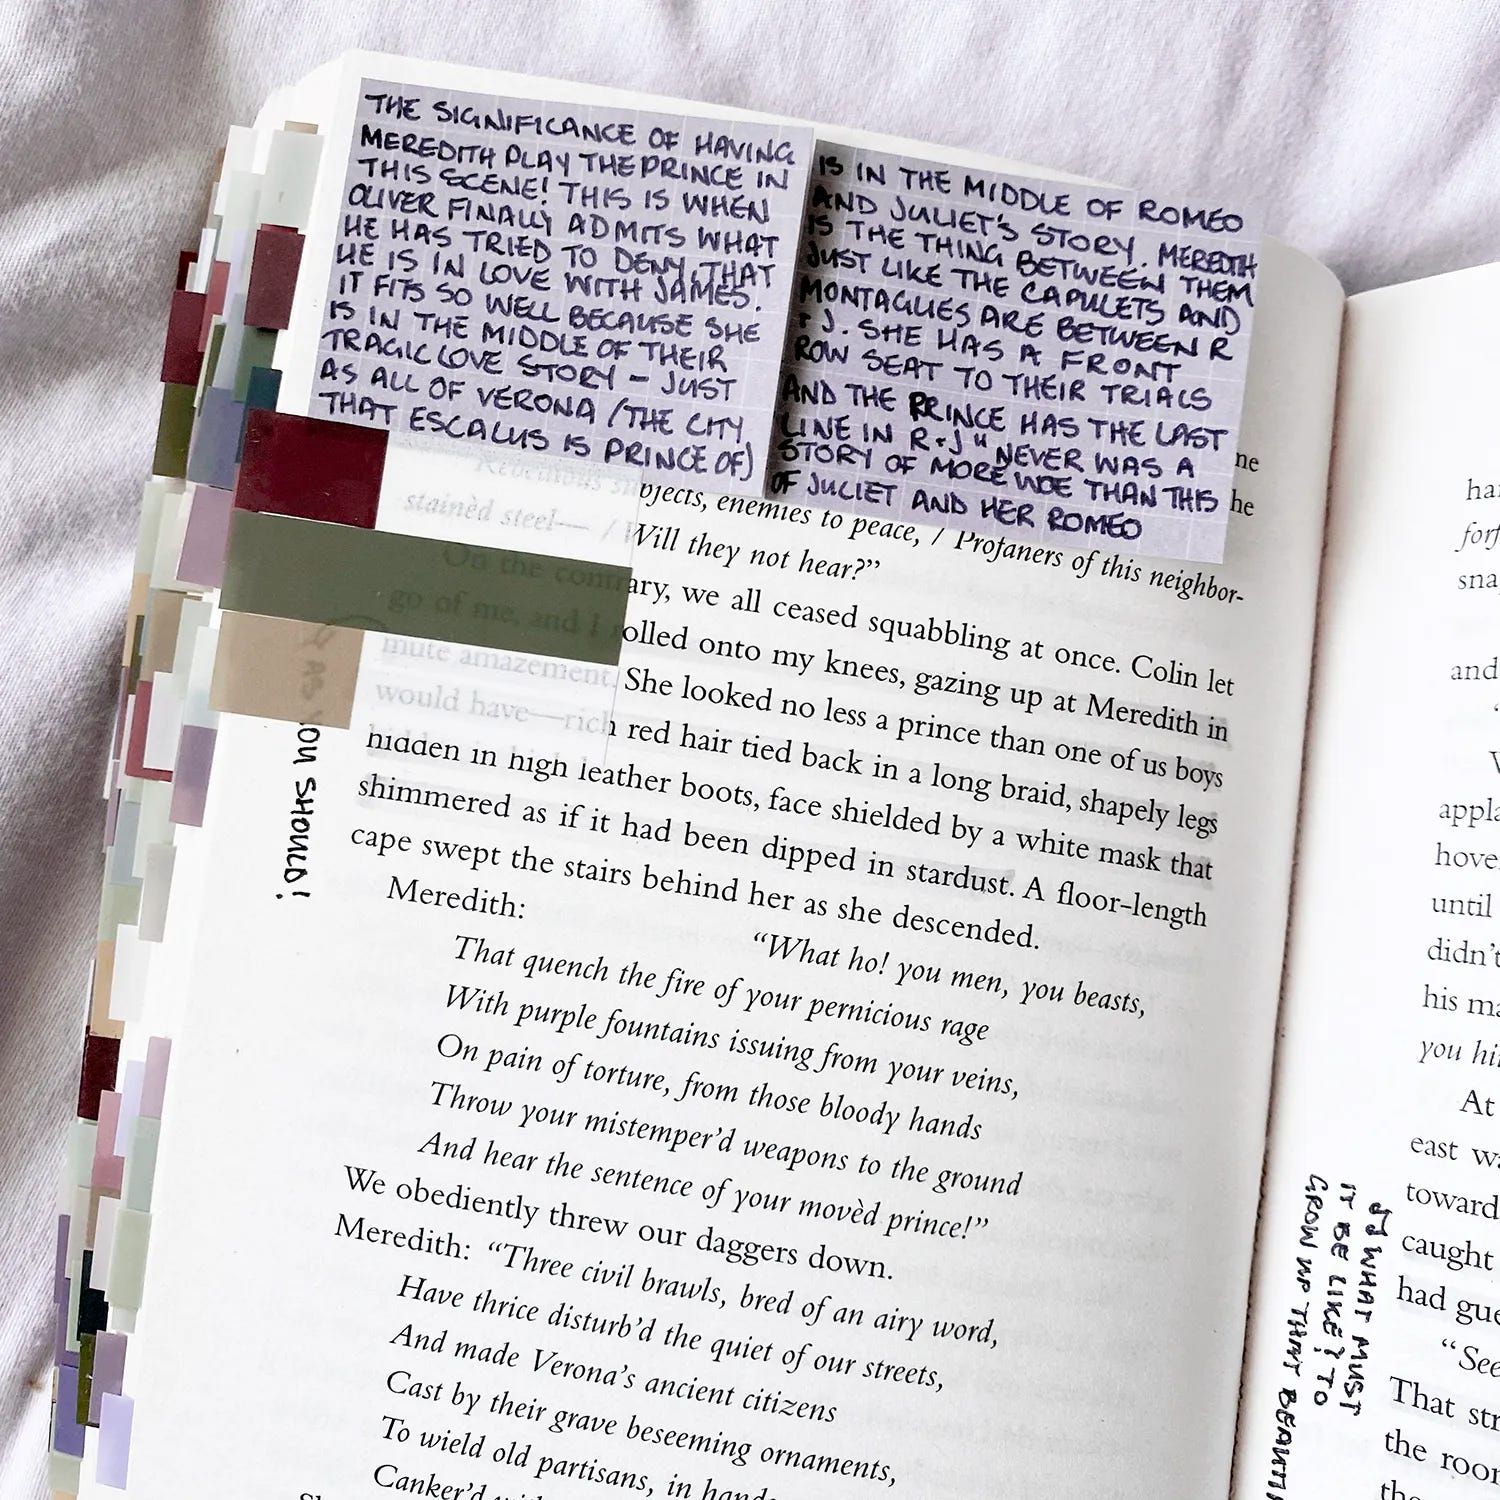 THE SIGNIFICANCE OF HAVING
MEREDITH PLAY THE PRINCE IN
THIS SCENE! THIS IS WHEN
OLIVER FINALLY ADMITS WHAT
HE HAS TRIED TO DENY, THAT
HE IS IN LOVE WITH JAMES.
IT FITS SO WELL BECAUSE SHE
IS IN THE MIDDLE OF THEIR
TRAGIC LOVE STORY – JUST
AS ALL OF VERONA (THE CITY
THAT ESCALUS IS PRINCE OF)
IS IN THE MIDDLE OF ROMEO
AND JULIET'S STORY. MEREDITH
IS THE THING BETWEEN THEM
JUST LIKE THE CAPULETS AND
MONTAGUES ARE BETWEEN R
+ J. SHE HAS A FRONT
ROW SEAT TO THEIR TRIALS
AND THE PRINCE HAS THE LAST
LINE IN R+J "NEVER WAS A
STORY OF MORE WOE THAN THIS
OF JULIET AND HER ROMEO
ne
he
Rebellious
bjects, enemies to peace, / Profaners of this neighbor-
stainèd steel— / Will they not hear?”
On the contrary, we all ceased squabbling at once. Colin let
go of me, and I rolled onto my knees, gazing up at Meredith in
mute amazement. She looked no less a prince than one of us boys
would have—rich red hair tied back in a long braid, shapely legs
hidden in high leather boots, face shielded by a white mask that
shimmered as if it had been dipped in stardust. A floor-length
cape swept the stairs behind her as she descended.
Meredith:
“What ho! you men, you beasts,
That quench the fire of your pernicious rage
With purple fountains issuing from your veins,
On pain of torture, from those bloody hands
Throw your mistemper’d weapons to the ground
And hear the sentence of your movèd prince!”
We obediently threw our daggers down.
Meredith: “Three civil brawls, bred of an airy word,
Have thrice disturb’d the quiet of our streets,
And made Verona’s ancient citizens
Cast by their grave beseeming ornaments,
To wield old partisans, in
Canker’d
AS YOU SHOULD!
ha
forf
sna
and
appla
hove
until
didn’t
his ma
you hi
At
east wa
toward
caught
had gue
“See
That str
the roor
the
WHAT MUST
IT BE LIKE? TO
GROW UP THAT